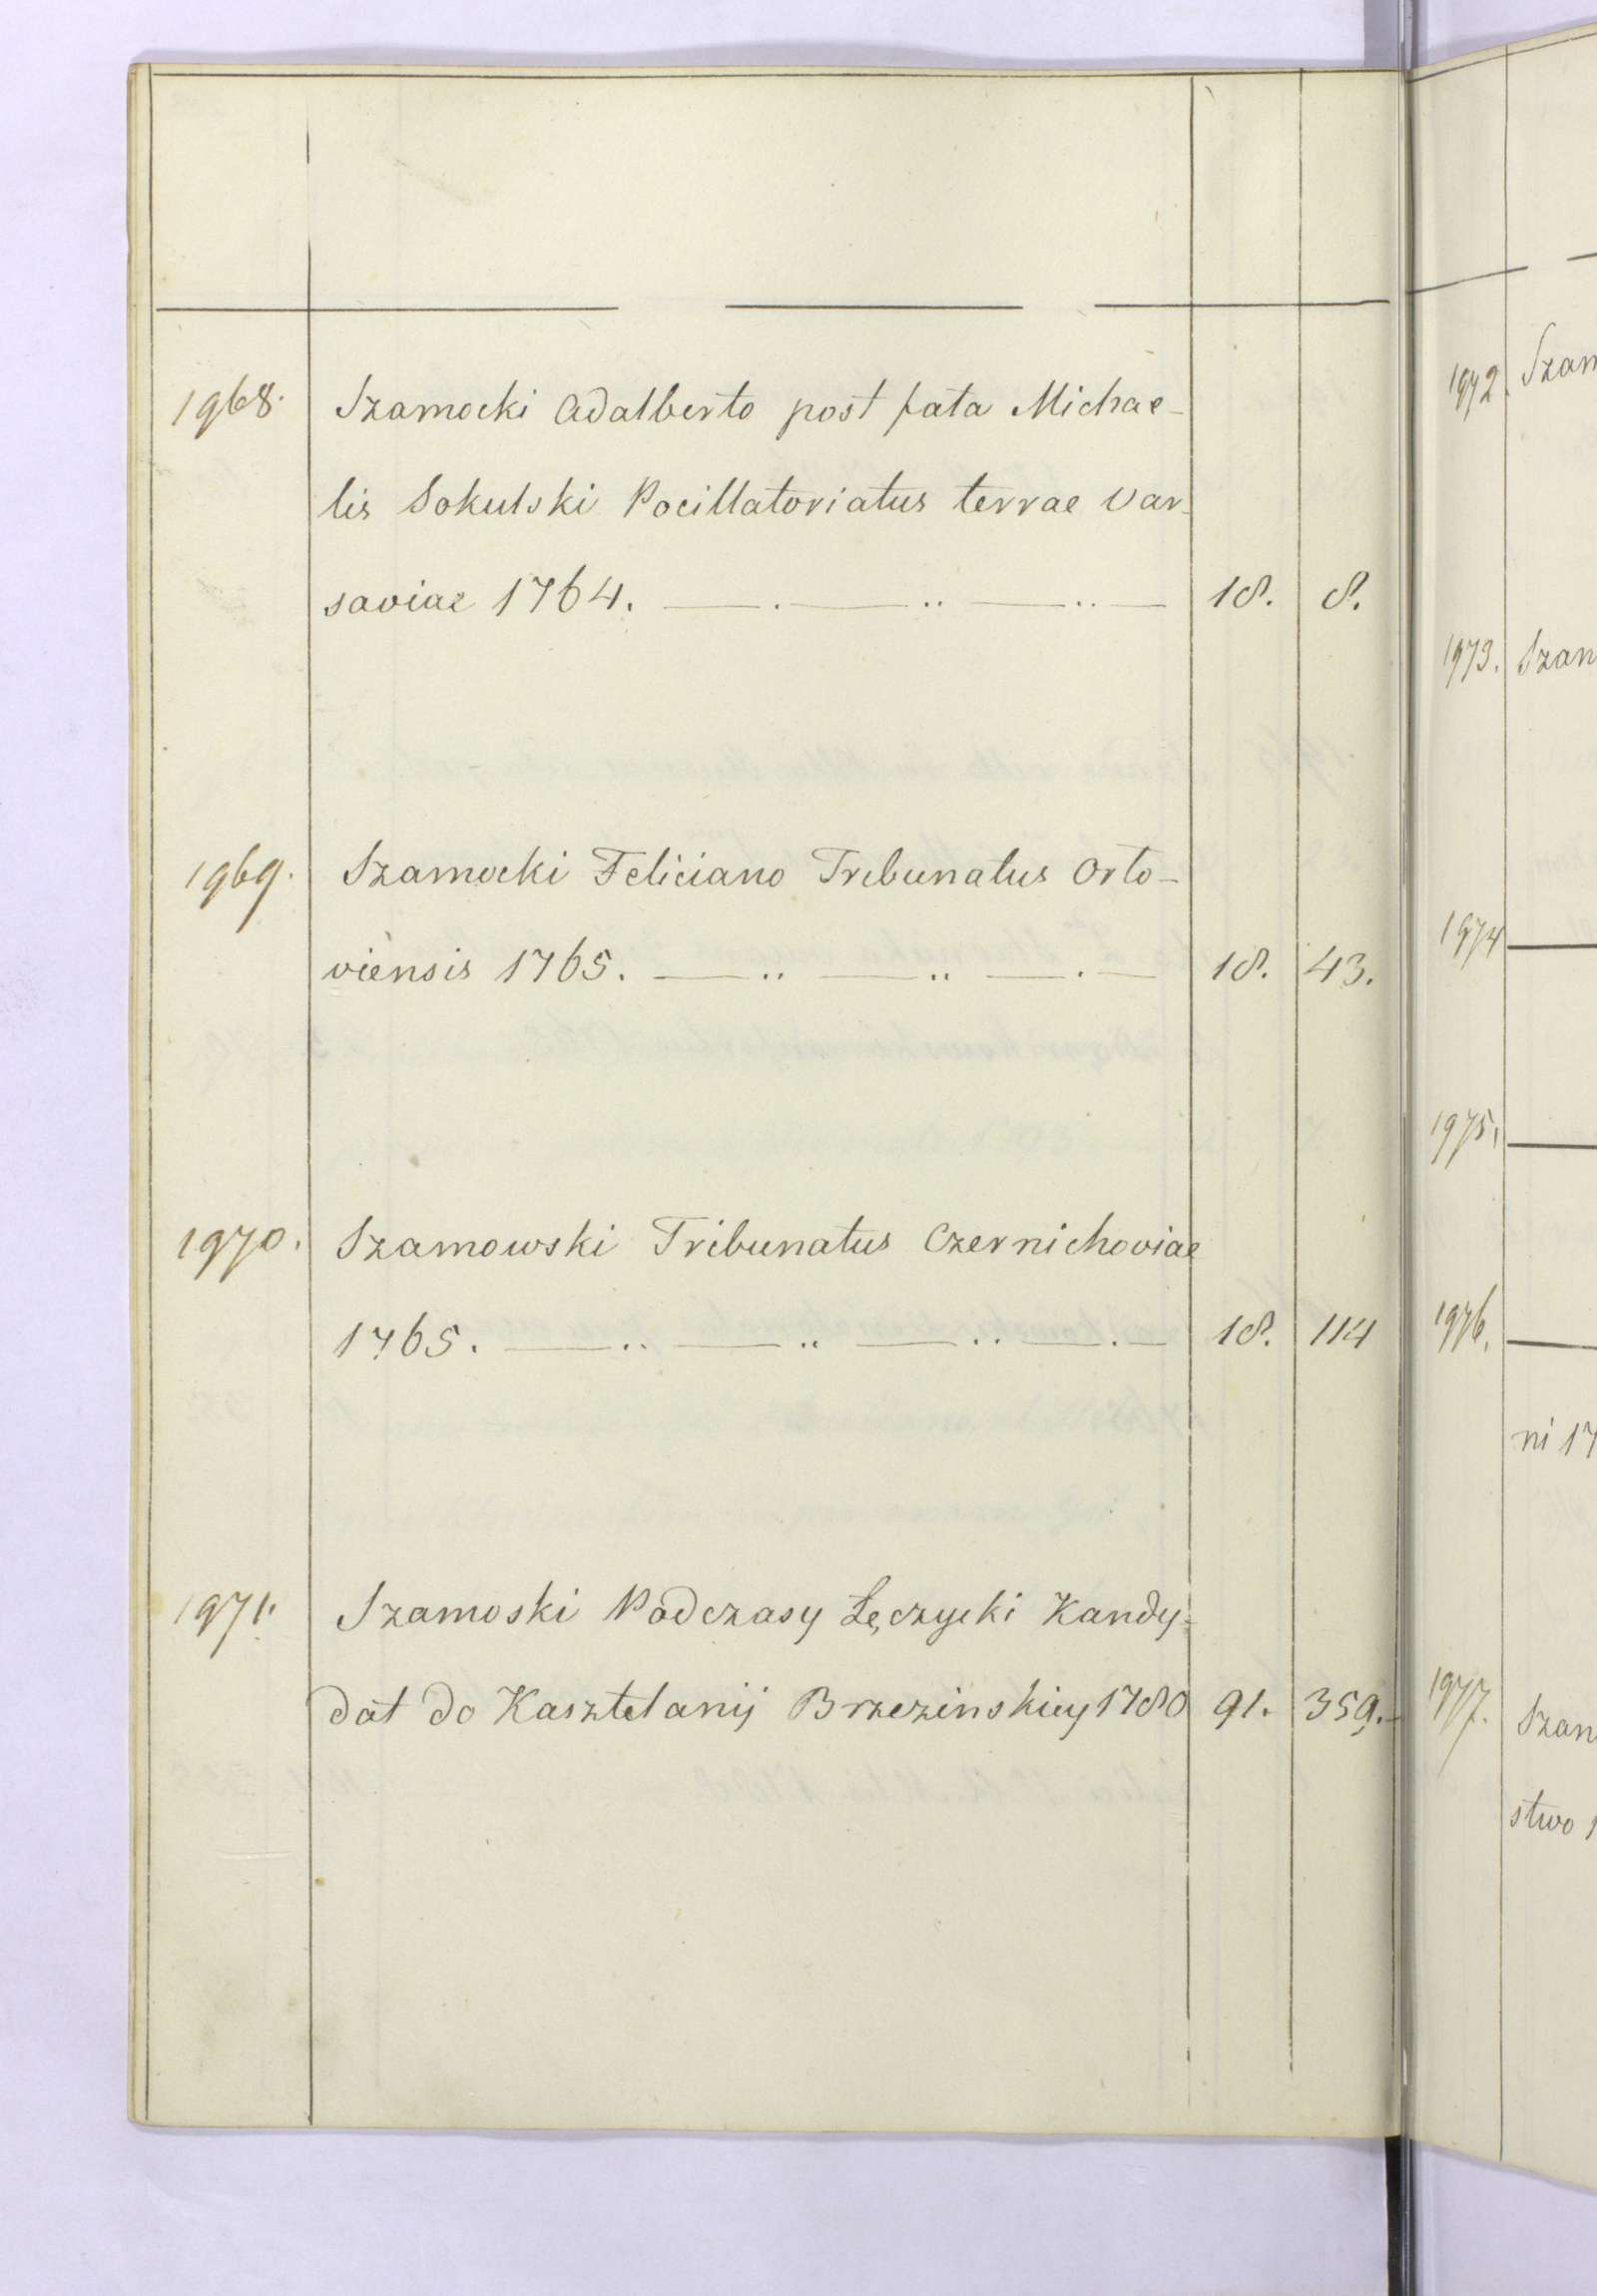 1968. Szamocki Adalberto post fata Michae-
lis Sokulski Pocillatoriatus terrae Var-
saviae 1764. 18. 8.
1969. Szamocki Feliciano Tribunatus Orlo-
viensis 1765. 18. 43.
1970. Szamowski Tribunatus Czernichoviae
1765. 18. 114
1971. Szamoski Podczasy Łęczycki Kandy-
dat do Kasztelanij Brzezinskiey 1780 91. 359.
1972. Szam
1973. Szan
1974
1975.
1976.
ni 17
1977. Szam
stwo 1